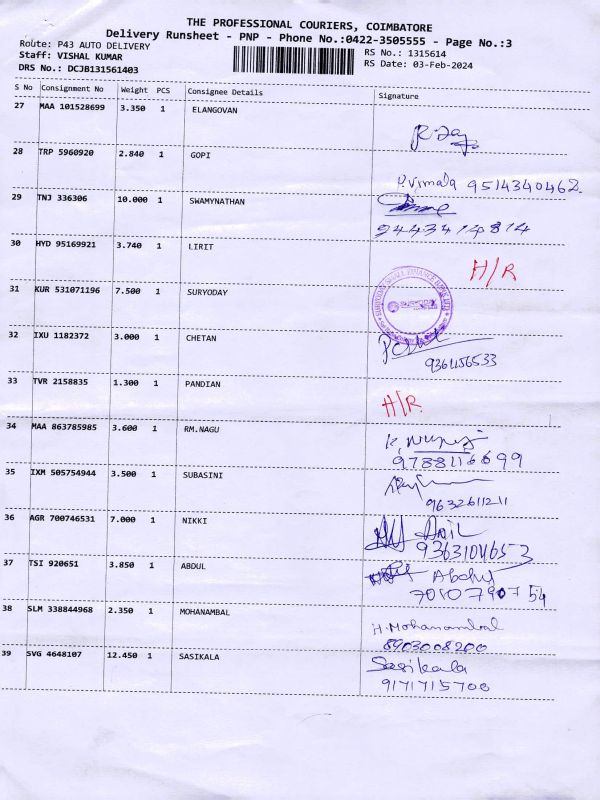 THE PROFESSIONAL COURIERS, COIMBATORE
Delivery Runsheet - PNP - Phone No.:0422-3505555 - Page No.:3
Route: P43 AUTO DELIVERY
RS No.: 1315614
Staff: VISHAL KUMAR
RS Date: 03-Feb-2024
DRS No.: DCJB131561403
S No Consignment No Weight PCS Consignee Details Signature
27 MAA 101528699 3.350 1 ELANGOVAN
28 TRP 5960920 2.840 1 GOPI
P.Vimala 9514340462
29 TNJ 336306 10.000 1 SWAMYNATHAN
9443414814
30 HYD 95169921 3.740 1 LIRIT
H/R
31 KUR 531071196 7.500 1 SURYODAY
32 IXU 1182372 3.000 1 CHETAN
33 TVR 2158835 1.300 1 PANDIAN
H/R
34 MAA 863785985 3.600 1 RM.NAGU
9788116699
35 IXM 505754944 3.500 1 SUBASINI
9632611211
36 AGR 700746531 7.000 1 NIKKI
Anil
9363104653
37 TSI 920651 3.850 1 ABDUL
Abdul
7010790754
38 SLM 338844968 2.350 1 MOHANAMBAL
H.Mohanambal
8903008200
39 SVG 4648107 12.450 1 SASIKALA
Sasikala
9171715700